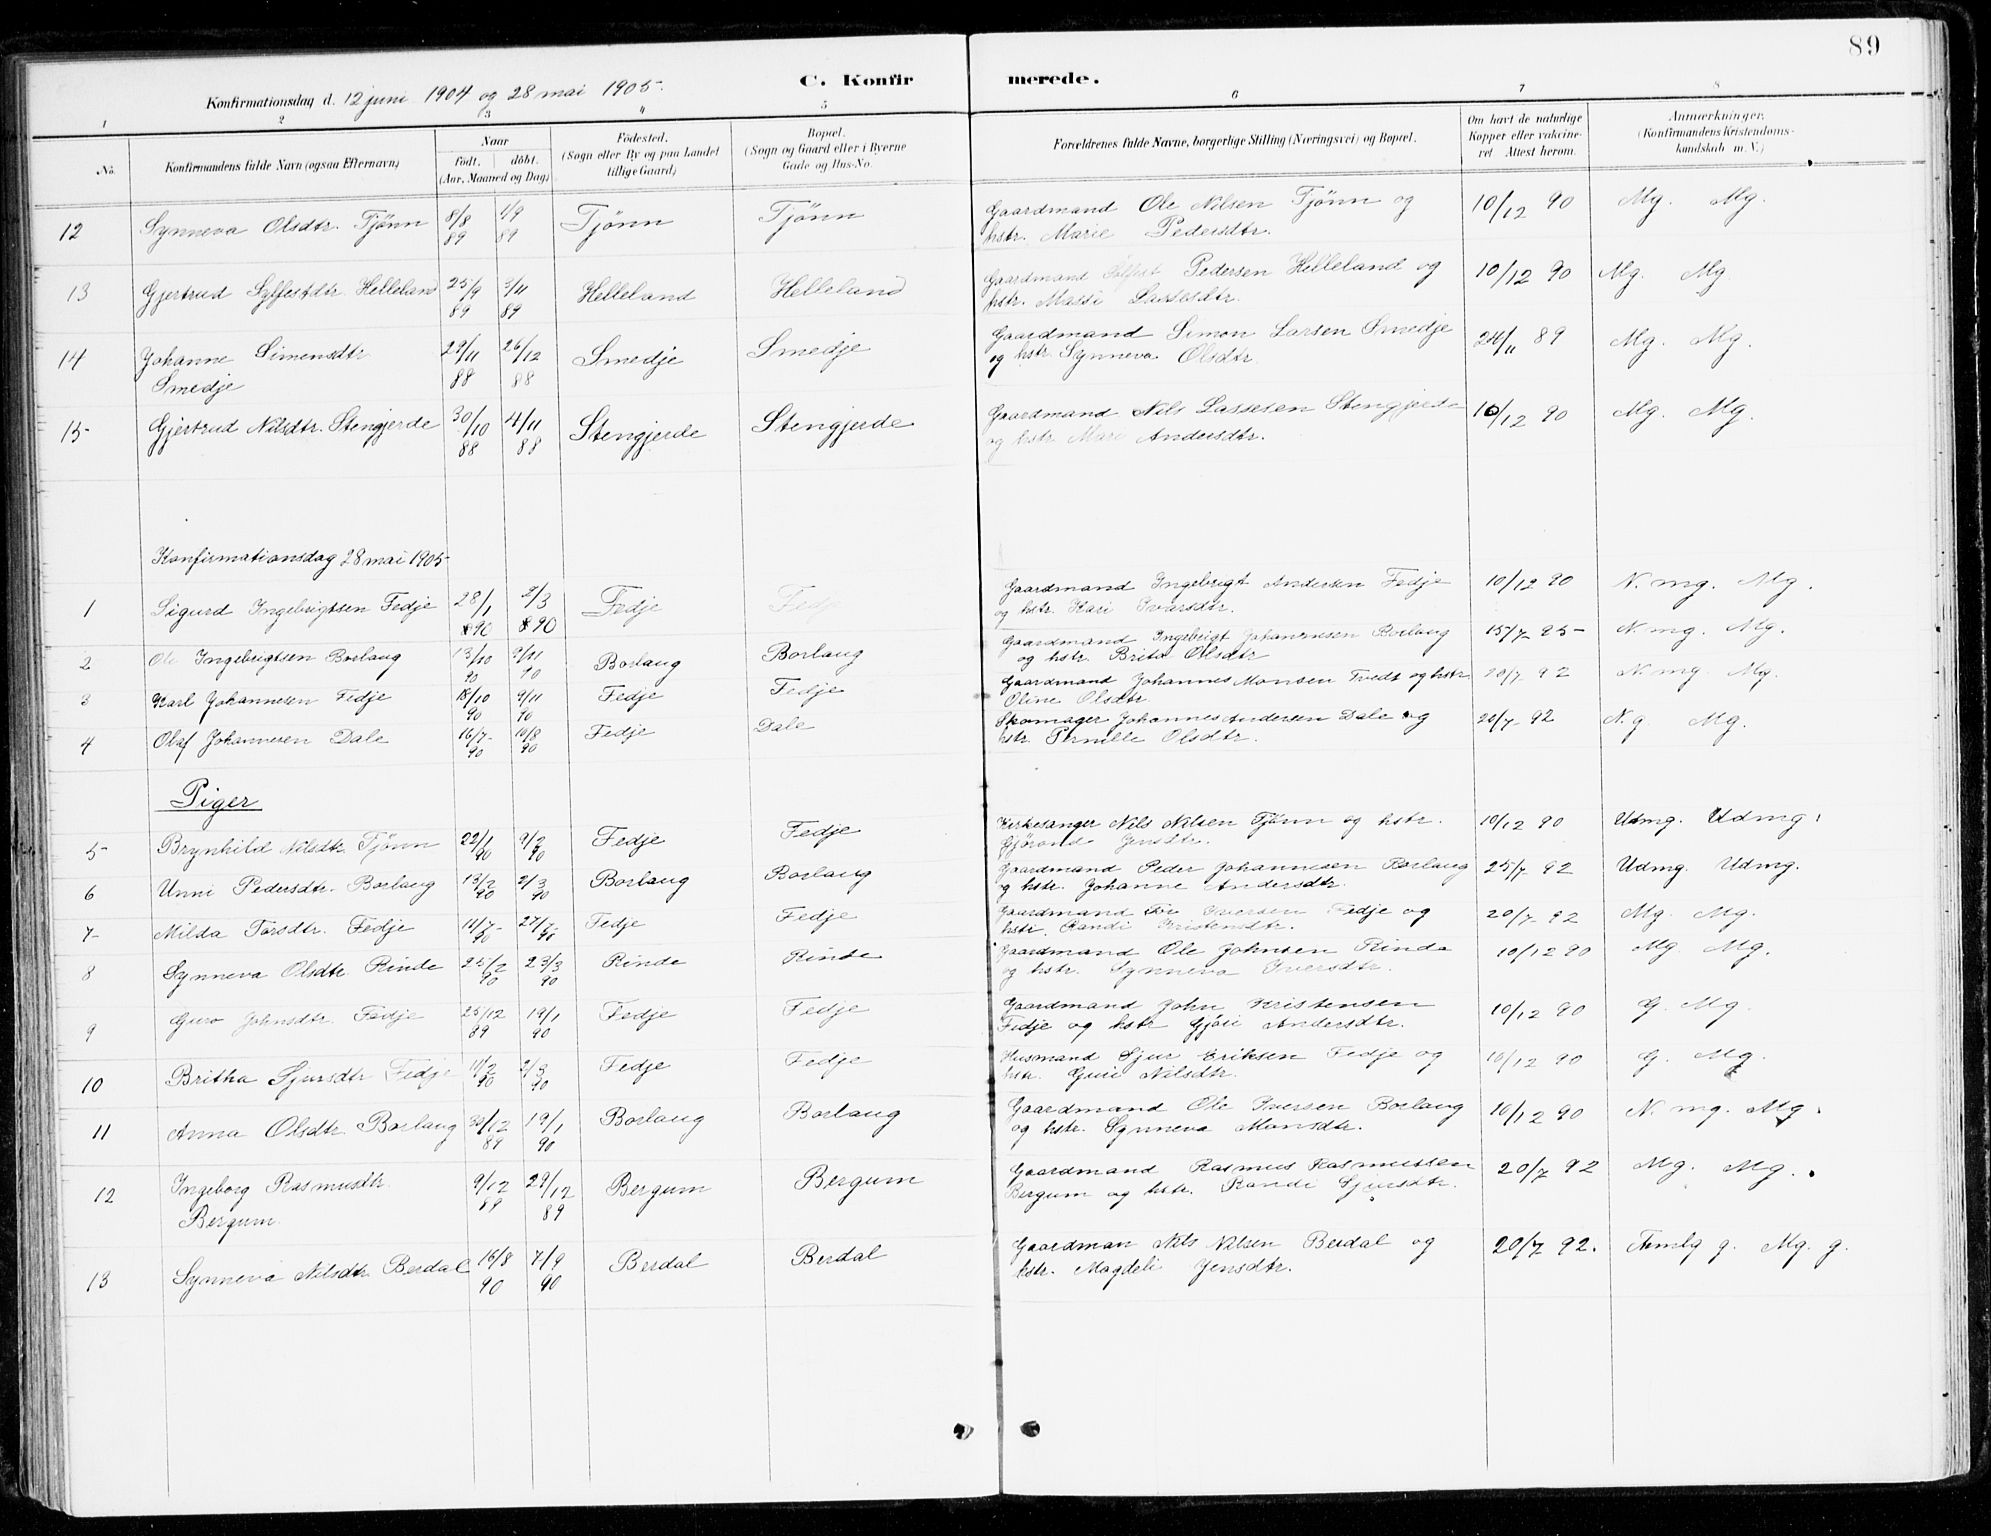 89
C. Konfir merede.
Konfirmationsdag d. 12 juni 1904 og 28 mai 1905.
1 2 3 4 5 6 7 8
No. Konfirmandens fulde Navn (ogsaa Efternavn) Naar födt. döbt. (Aar, Maaned og Dag) Födested. (Sogn eller By og paa Landet tillige Gaard) Bopæl. (Sogn og Gaard eller i Byerne Gade og Hus-No. Forældrenes fulde Navne, borgerlige Stilling (Næringsvei) og Bopæl. Om havt de naturlige Kopper eller vaccineret. Attest herom. Anmærkninger. (Konfirmandens Kristendomskundskab m. V.)
12 Synneva Olsdtr. Tjønn 8/8 89 1/9 89 Tjønn Tjønn Gaardmand Ole Nilsen Tjønn og 10/12 90 Mg. Mg.
hstr. Marie Pedersdtr.
13 Gjertrud Sylfestdtr. Helleland 25/9 89 3/11 89 Helleland Helleland Gaardmand Sylfest Pedersen Helleland og 10/12 90 Mg. Mg
hstr. Massi Lassesdtr.
14 Johanne Simensdtr. 29/11 88 26/12 88 Smedje Smedje Gaardmand Simon Larsen Smedje 24/11 89 Mg. Mg.
Smedje og hstr. Synneva Olsdtr.
15 Gjertrud Nilsdtr. Stengjerde 30/10 88 4/11 88 Stengjerde Stengjerde Gaardmand Nils Lassesen Stengjerde 10/12 90 Mg. Mg.
og hstr. Mari Andersdtr.
Konfirmationsdag 28 mai 1905
1 Sigurd Ingebrigtsen Fedje 28/1 890 2/3 890 Fedje Fedje Gaardmand Ingebrigt Andersen Fedje 10/12 90 N. mg. Mg.
og hstr. Kari Ivarsdtr.
2 Ole Ingebrigtsen Borlaug 13/10 90 9/11 90 Borlaug Borlaug Gaardmand Ingebrigt Johannesen Borlaug 15/7 95 N. mg. Mg.
og hstr. Brita Olsdtr
3 Karl Johannesen Fedje 18/10 90 9/11 90 Fedje Fedje Gaardmand Johannes Monsen Tvedt og hstr 20/7 92 N. mg. Mg.
Oline Olsdtr
4 Olaf Johannesen Dale 16/7 90 10/8 90 Fedje Dale Skomager Johannes Andersen Dale og 20/7 92 N. g. Mg.
hstr. Pernille Olsdtr.
Piger
5 Brynhild Nilsdtr. Tjønn 22/1 90 9/2 90 Fedje Fedje Kirkesanger Nils Nilsen Tjønn og hstr. 10/12 90 Udmg. Udmg.
Gjørond Jensdtr.
6 Unni Pedersdtr. Borlaug 13/2 90 2/3 90 Borlaug Borlaug Gaardmand Peder Johannesen Borlaug 25/7 92 Udmg. Udmg.
og hstr. Johanne Andersdtr.
7 Milda Torsdtr. Fedje 11/7 90 27/7 90 Fedje Fedje Gaardmand Tor Iversen Fedje og 20/7 92 Mg. Mg.
hstr. Randi Kristensdtr.
8 Synneva Olsdtr Rinde 25/2 90 23/3 90 Rinde Rinde Gaardmand Ole Johnsen Rinde 10/12 90 Mg. Mg.
og hstr. Synneva Iversdtr.
9 Guro Johnsdtr. Fedje 25/12 89 19/1 90 Fedje Fedje Gaardmand John Kristensen 10/12 90 G. Mg.
Fedje og hstr Gjøri Andersdtr.
10 Britha Sjursdtr Fedje 11/2 90 2/3 90 Fedje Fedje Husmand Sjur Eriksen Fedje og 10/12 90 G. Mg.
hstr. Guri Nilsdtr.
11 Anna Olsdtr. Borlaug 30/12 89 19/1 90 Borlaug Borlaug Gaardmand Ole Iversen Borlaug 10/12 90 N. mg. Mg.
og hstr. Synneva Monsdtr.
12 Ingeborg Rasmusdtr. 9/12 89 29/12 89 Bergum Bergum Gaardmand Rasmus Rasmussen 20/7 92 Mg. Mg.
Bergum. Bergum og hstr. Randi Sjursdtr.
13 Synneva Nilsdtr Berdal 16/8 90 7/9 90 Berdal Berdal Gaardman Nils Nilsen Berdal og 20/7 92. Temlg g. Mg. g.
hstr. Magdeli Jensdtr.